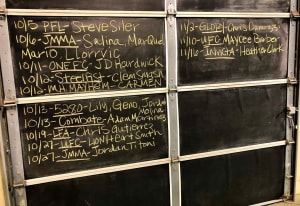 10/5 PFL - Steve Siler
10/6 - JMMA - Salina MarQuel
Mario Llorvic
10/11 - ONE FC - JD Hardwick
10/12 - Steelfist - Clem Smash
10/12 - M.H. MayHem - CARMEN
10/13 - F230 - Lily, Geno, Jordan
Molina
10/13 - Combate - Adam Martinez
10/19 - LFA - Chris Gutierrez
10/27 - UFC - LionHeart Smith
10/27 - JMMA - Jordan Titoni
11/2 - GLORY - Chris
11/10 - UFC Maycee Barber
11/16 - INVICTA - Heather Clark